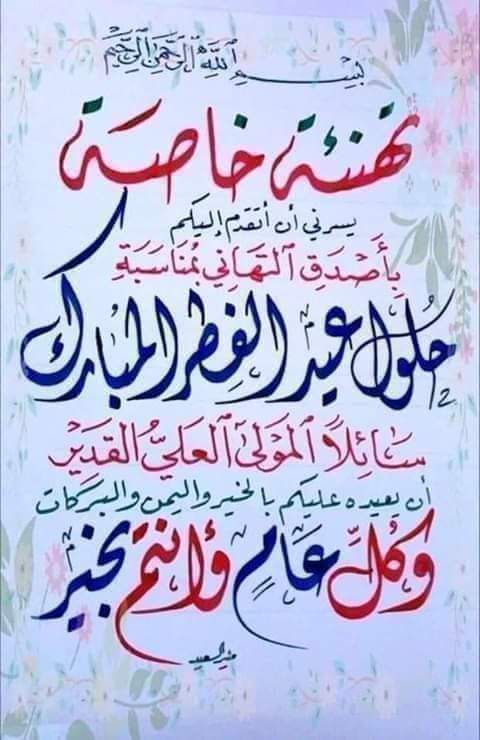 بسم الله الرحمن الرحيم
تهنئة خاصة
يسرني أن أتقدم إليكم
بِأَصْدَقِ التَهَانِي بمُنَاسَبَةِ
حُلُول عيد الفِطر المبارك
سَائِلًا المَوْلَى العَلِيُّ القَدِير
أن يعيده عليكم بالخير واليمن والبركات
وَكُلِّ عَامٍ وَأَنتم بخير
منير السعيد